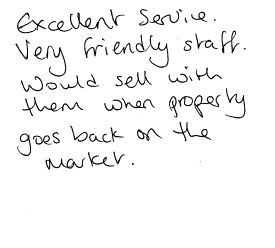 Excellent Service.
Very friendly staff.
Would sell with
them when property
goes back on the
market.